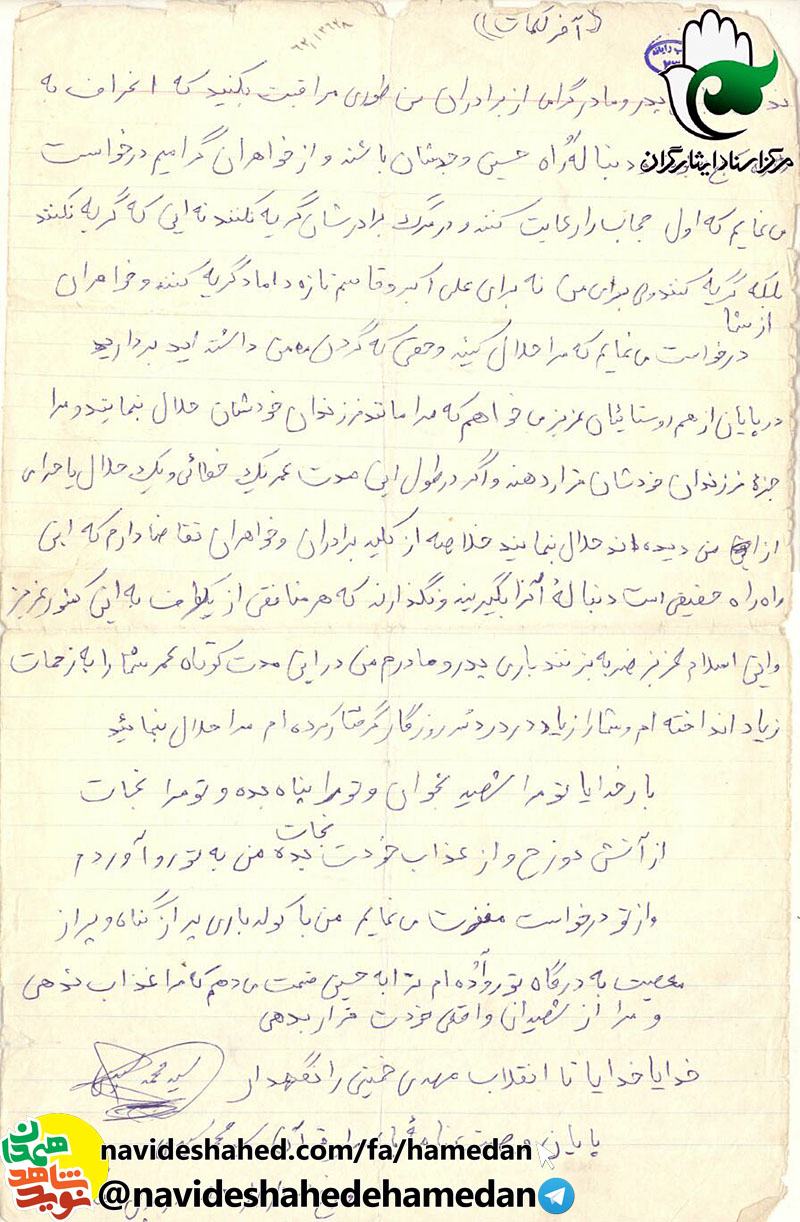 ((آخر کلمات))
۶۲،۱۳۶۲۸
پدر و مادر گرامی از برادران من طوری مراقبت بکنید که انحراف به
دنبالهٔ راه حسینی وجدشان باشند و از خواهران گرامیم درخواست
می نمایم که اول حجابرا رعایت کنند و در مرگ برادرشان گریه نکنند نه اینکه گریه نکنند
بلکه گریه کنند ولی برای من نه برای علی اکبر و قاسم تازه داماد گریه کنند و خواهران
از شما
درخواست می نمایم که مرا حلال کنید و حقی که گردن من داشته اید بردارید
در پایان از هم روستائیان عزیز می خواهم که مرا مانند فرزندان خودشان حلال بنمایند و مرا
جزء فرزندان خودشان قرار دهند و اگر در طول این مدت عمر یک خطائی و یک حلال یا حرامی
از من دیده اند حلال بنمایند خلاصه از کلیه برادران و خواهران تقاضا دارم که این
راه راه حقیقی است دنبالهٔ آنرا بگیرید و نگذارند که هر منافقی از یکطرف به این کشور عزیز
و این اسلام عزیز ضربه بزنند باری پدر و مادرم من در این مدت کوتاه عمر شما را به زحمات
زیاد انداخته ام و شما را زیاد در درد سر روزگار گرفتار کرده ام مرا حلال بنمائید
بار خدایا تو مرا شهید بخوان و تو مرا پناه بده و تو مرا نجات
از آتش دوزخ و از عذاب خودت نجات بده من به تو رو آوردم
و از تو درخواست مغفرت می نمایم من با کوله باری پر از گناه و پر از
معصیت به درگاه تو رو آورده ام ترا به حسین قسمت می دهم که مرا عذاب ندهی
و مرا از شهیدان واقعی خودت قرار بدهی
خدایا خدایا تا انقلاب مهدی خمینی را نگهدار
سید محمد
پایان وصیت نامهٔ
مرکز اسناد ایثارگران
نوید شاهد همدان
navideshahed.com/fa/hamedan
@navideshahedehamedan